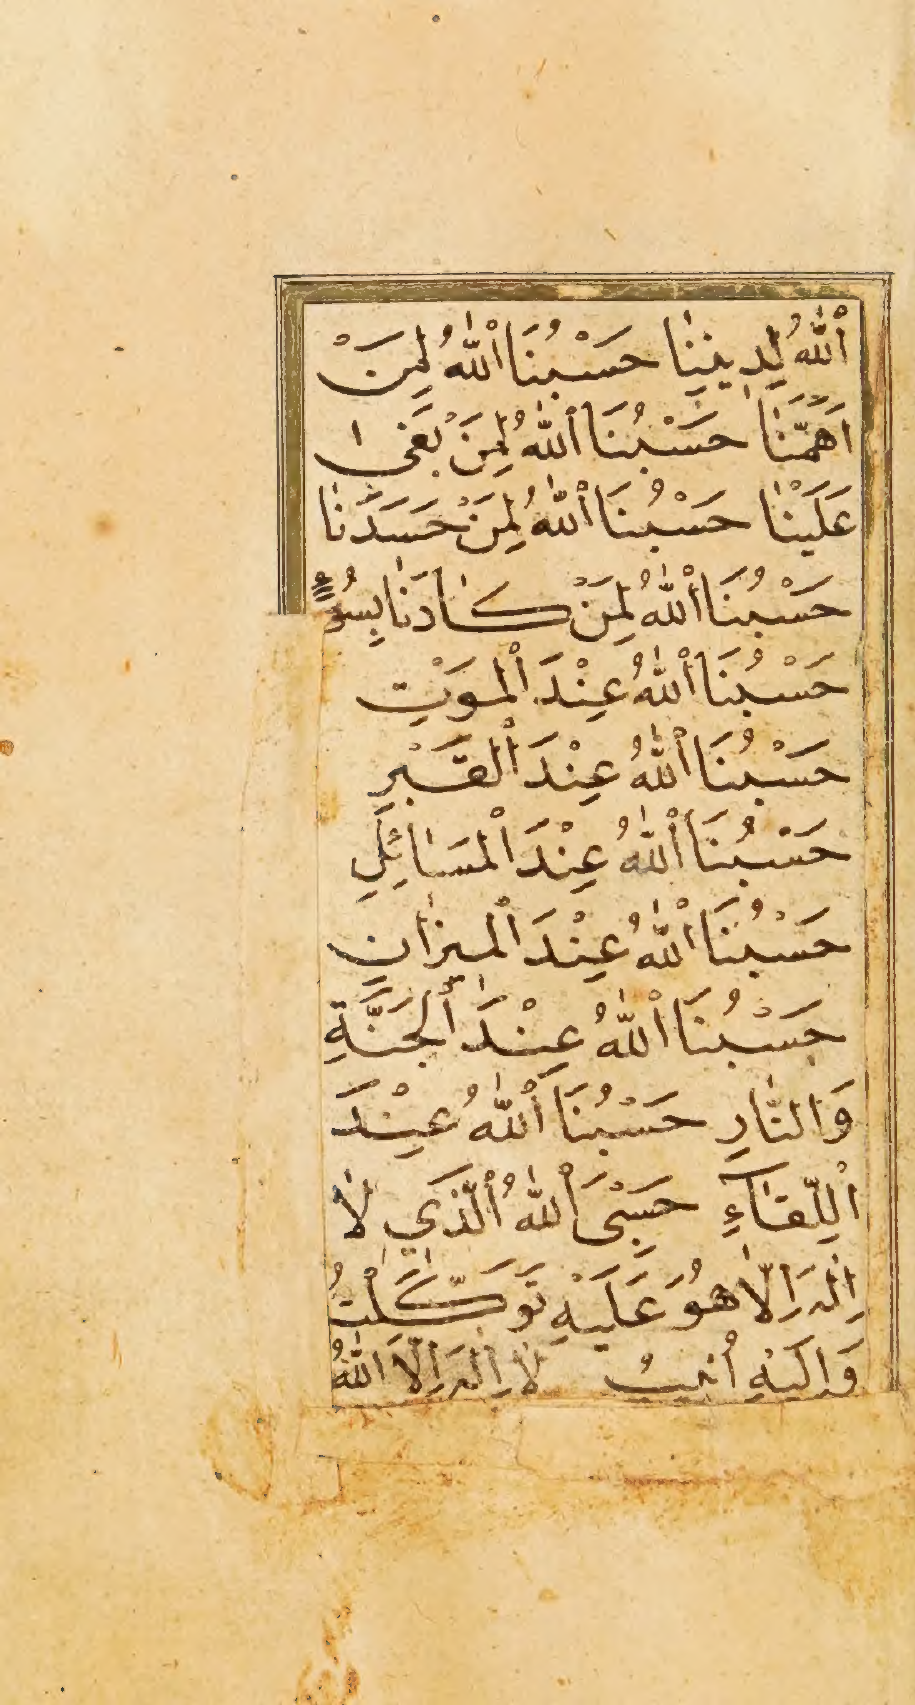 اَللّٰهُ لِدِينِنَا حَسْبُنَا اَللّٰهُ لِمَنْ
اَهَمَّنَا حَسْبُنَا اَللّٰهُ لِمَنْ بَغٰى
عَلَيْنَا حَسْبُنَا اَللّٰهُ لِمَنْ حَسَدَنَا
حَسْبُنَا اَللّٰهُ لِمَنْ كَادَنَا بِسُوءٍ
حَسْبُنَا اَللّٰهُ عِنْدَ الْمَوْتِ
حَسْبُنَا اَللّٰهُ عِنْدَ الْقَبْرِ
حَسْبُنَا اَللّٰهُ عِنْدَ الْمَسَائِلِ
حَسْبُنَا اَللّٰهُ عِنْدَ الْمِيزَانِ
حَسْبُنَا اَللّٰهُ عِنْدَ الْجَنَّةِ
وَالنَّارِ حَسْبُنَا اَللّٰهُ عِنْدَ
اللِّقَآءِ حَسْبِىَ اَللّٰهُ الَّذِي لَا
اِلٰهَ اِلَّا هُوَ عَلَيْهِ تَوَكَّلْتُ
وَاِلَيْهِ اُنِيبُ لَا اِلٰهَ اِلَّا اللّٰهُ